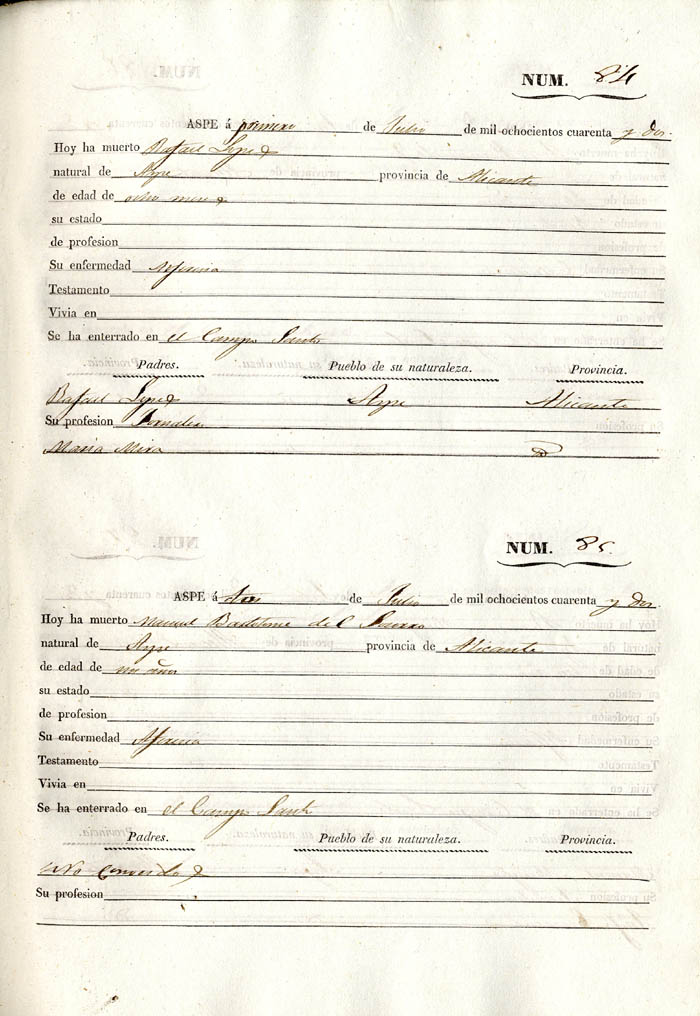 NUM. 84
ASPE á primero de Julio de mil ochocientos cuarenta y dos.
Hoy ha muerto Rafael Lopez
natural de Aspe provincia de Alicante
de edad de ocho meses
su estado
de profesion
Su enfermedad Alferecia
Testamento
Vivia en
Se ha enterrado en el Campo Santo
Padres. Pueblo de su naturaleza. Provincia.
Rafael Lopez Aspe Alicante
Su profesion Jornalero
Maria Mira
NUM. 85.
ASPE á de Julio de mil ochocientos cuarenta y dos.
Hoy ha muerto Manuel Bartolome del
natural de Aspe provincia de Alicante
de edad de un año
su estado
de profesion
Su enfermedad Alferecia
Testamento
Vivia en
Se ha enterrado en el Campo Santo
Padres. Pueblo de su naturaleza. Provincia.
No conocidos
Su profesion